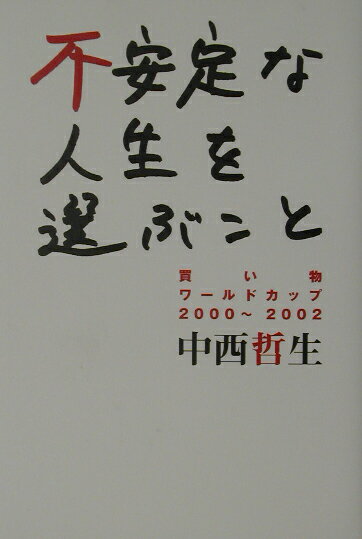 不安定な
人生を
選ぶこと
買い物
ワールドカップ
2000～2002
中西哲生